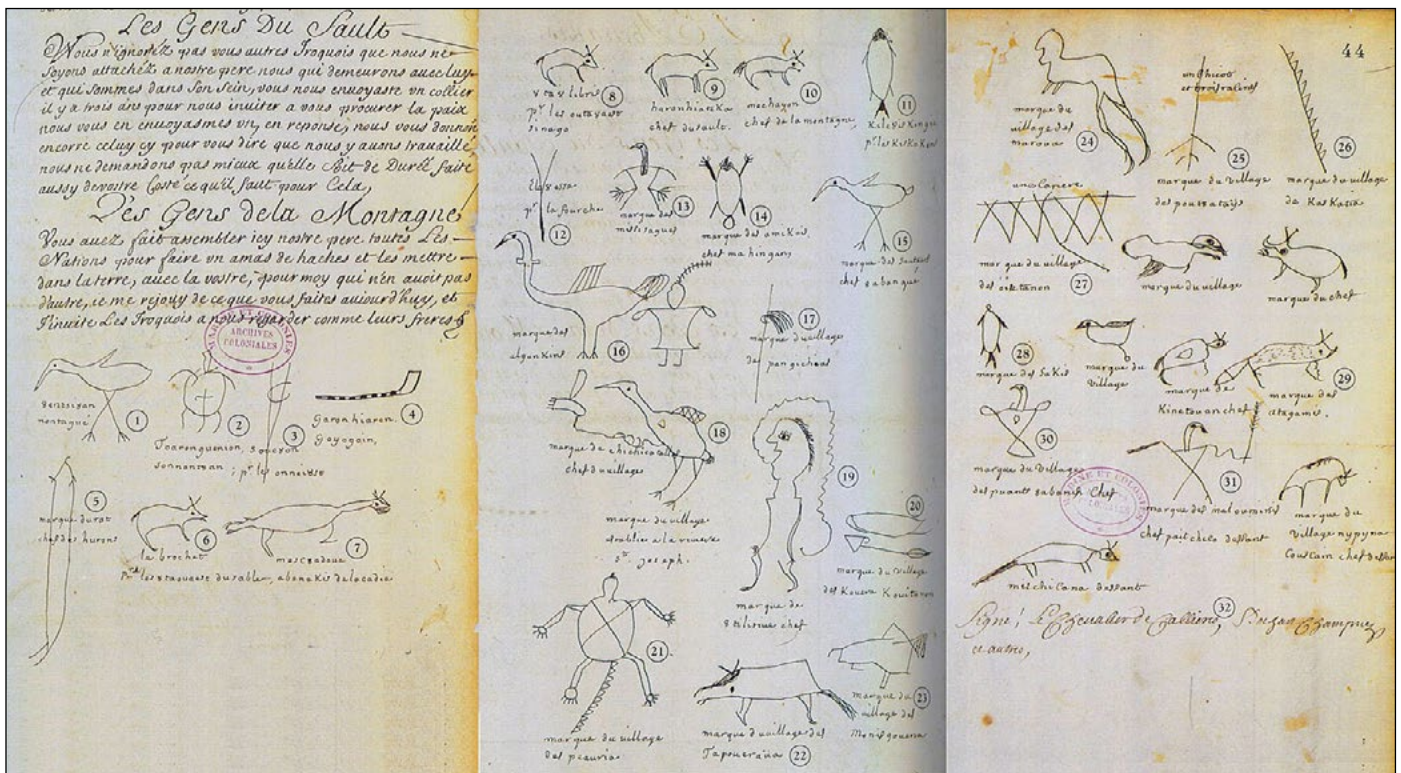 Les Gens Du Sault
Vous n'ignorez pas vous autres Iroquois que nous ne
soyons attachéz a nostre pere nous qui demeurons avec luy
et qui sommes dans son sein, vous nous envoyaste vn collier
il y a trois ans pour nous inuiter a vous procurer la paix
nous vous en enuoyasmes vn, en reponse, nous vous donnons
encorre celuy cy pour vous dire que nous y auons trauaillé
nous ne demandons pas mieux qu'elle soit de Durée, faite
aussy de vostre Coste ce qu'il faut pour Cela,
Les Gens de la Montagne
Vous auez fait assembler icy nostre pere toutes Les
Nations pour faire vn amas de haches et les mettre
dans la terre, auec la vostre, pour moy qui n'en auoit pas
d'autre, je me rejouy de ce que vous faites aujourd'huy, et
J'inuite Les Iroquois a nous regarder comme leurs freres
MARINE ET COLONIES
ARCHIVES
COLONIALES
montagué
1
2
3
garonhiaron
goyogoin,
4
Toarenguenion,
sonnontuan; pr les onneiost
5
marque du rat
chef des hurons
6
le brochet
7
abenakis de lacadie
8
pr les outavast
sinago
9
haronhiateka
chef du sault.
10
mechayon
chef de la montagne,
11
Kileouiskingie
12
Elavasse
pr la fourche
13
marque des
missisagues
14
marque des amikois,
chef mahingan,
15
marque des
chef
16
marque des
algonkins
17
marque du village
des pangicheas
18
marque de chichicatalo
chef du village
marque du village
etablie a la riviere
St. joseph.
19
marque de
chef
20
marque du village
des
21
marque du village
des peauria
22
marque du village des
Tapoueroüa
23
marque du
village des
Monisgouena
44
24
marque du
village des
maroua
un chicot
et trois racines
25
marque du village
des
26
marque du village
de Kaskasia
27
marque du village
des
marque du village
marque du chef
28
marque des Sakis
marque du
Village
marque de
chef
29
marque des
30
marque du village
des puants
chef
MARINE ET COLONIES
31
marque des maloumines
chef
marque du
village
32
Signé! Le Chevalier de Calliere, Champigny
et autres,